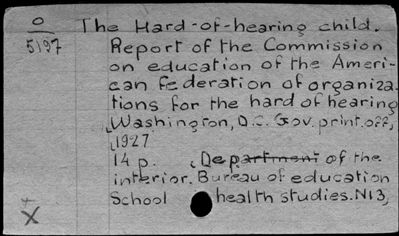 O The Hard-of-hearing child.
5197 Report of the Commission
on education of the Ameri-
can federation of organiza-
tions for the hard of hearing
Washington, D.C. Gov. print. off,
1927
14 p. Department of the
interior. Bureau of education
School health studies. N13,
X